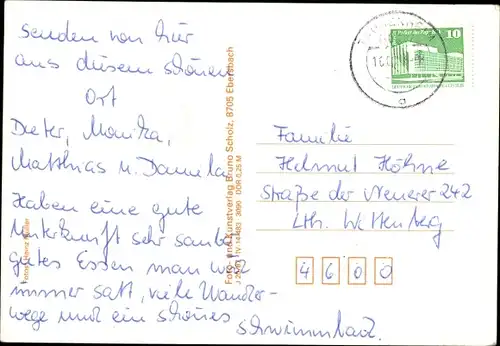 senden von hier
aus diesem schönen
Ort
Dieter, Monika,
Matthias u. Daniela
Haben eine gute
Unterkunft sehr sauber
gutes Essen man wird
immer satt, viele Wander-
wege und ein schönes
schwimmbad.
Foto: Heinz Müller
Foto- und Kunstverlag Bruno Scholz, 8705 Ebersbach
14483 3090 DDR 0,25 M
10
Familie
Helmut Höhne
Straße der Neuerer 242
Lth. Wittenberg
4600